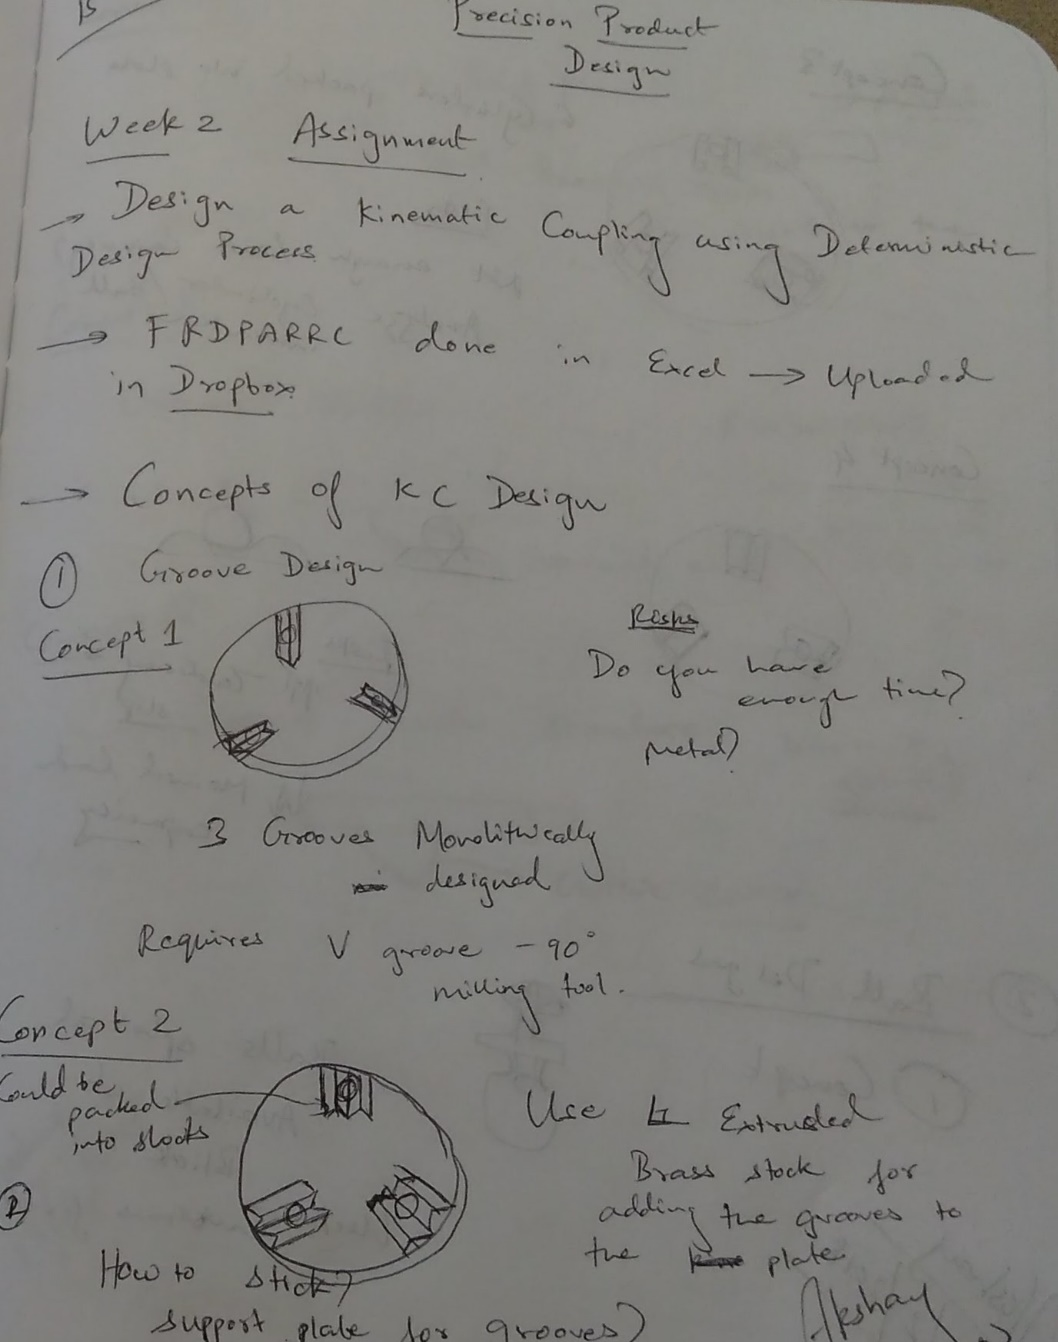 15
Precision Product
Design
Week 2 Assignment
→ Design a Kinematic Coupling using Deterministic
Design Process
→ FRDPARRC done in Excel → Uploaded
in Dropbox
→ Concepts of KC Design
① Groove Design
Concept 1
Risks
Do you have
enough time?
Metal?
3 Grooves Monolithically
designed
Requires V groove - 90°
milling tool.
Concept 2
Could be
packed
into slots
Use Extruded
Brass stock for
adding the grooves to
the plate
②
How to stick?
support plate for grooves?
Akshay